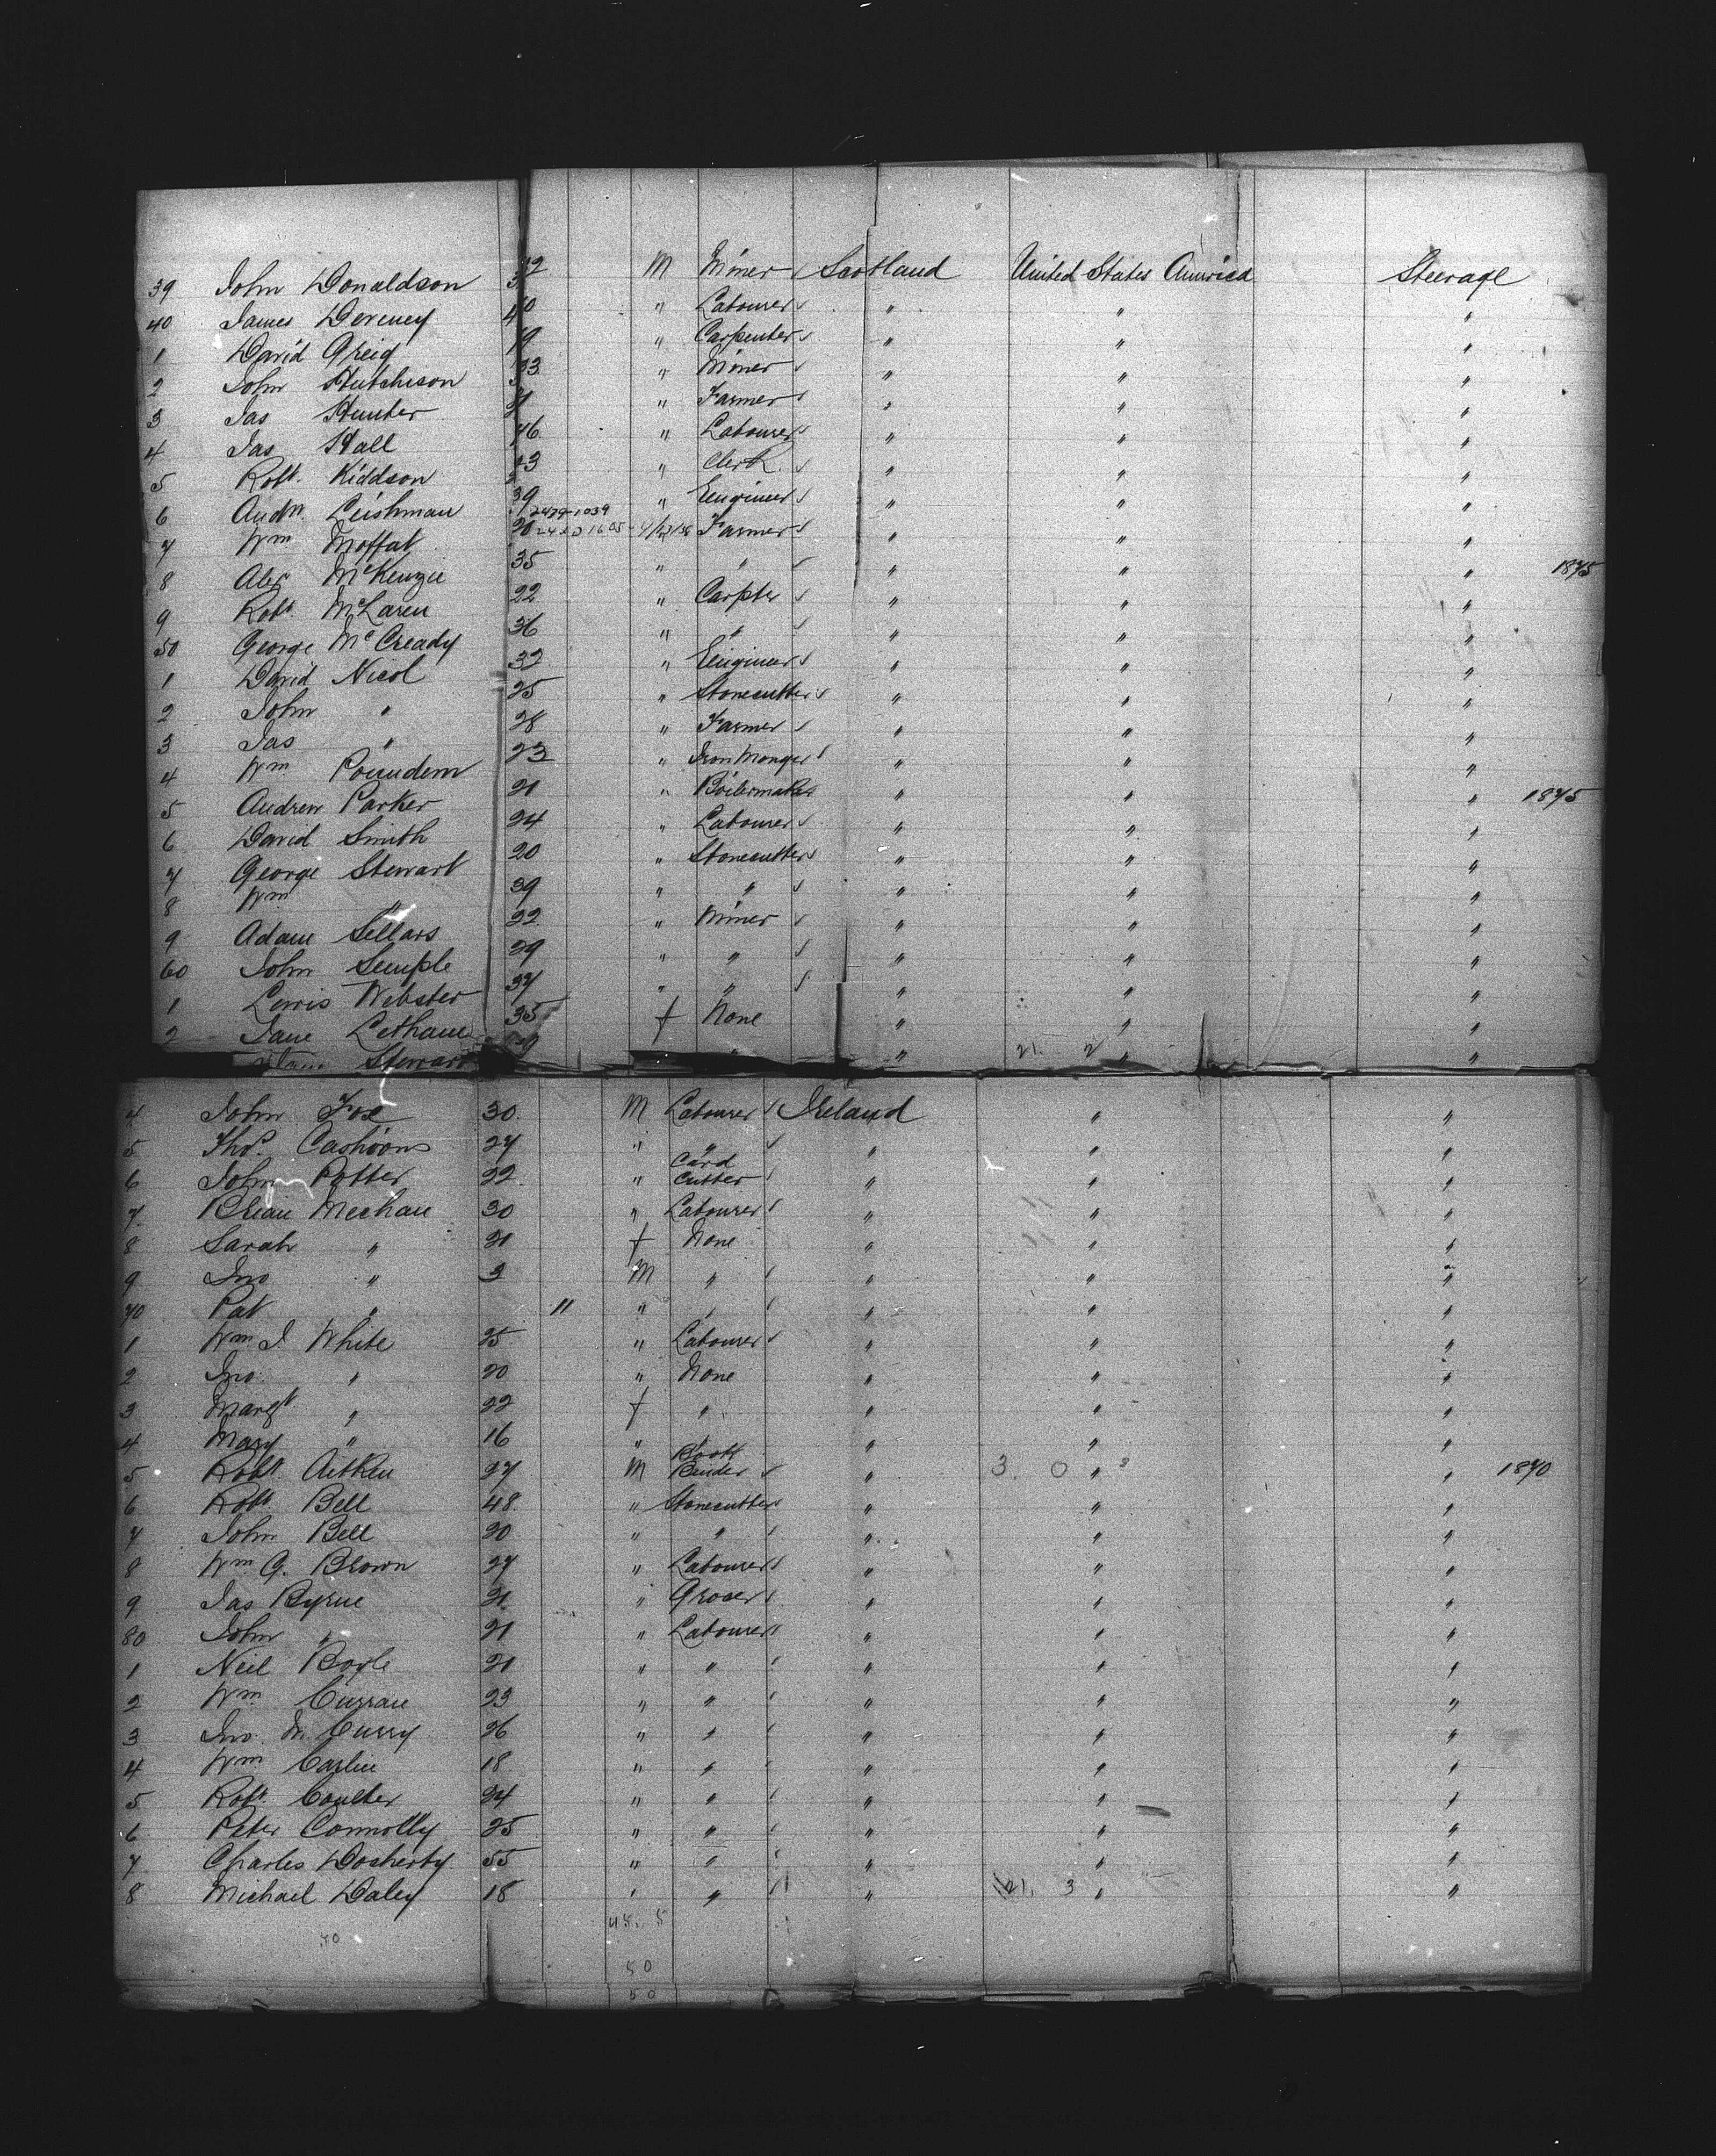 39 John Donaldson 32 M Miner Scotland United States America Steerage
40 James Derveney 40 " Labourer " " "
1 David Greig 19 " Carpenter " " "
2 John Hutchison 33 " Miner " " "
3 Jas Hunter 21 " Farmer " " "
4 Jas Hall 46 " Labourer " " "
5 Robt. Kiddson 23 " Clerk " " "
6 Andw. Leishman 39 " Engineer " " "
2479-1039
7 Wm Moffat 20 4/22/38 Farmer " " "
8 Alex McKenzie 35 " " " " " 1875
9 Robt. McLaren 22 " Carpter " " "
50 George McCready 36 " " " " "
1 David Nicol 32 " Engineer " " "
2 John " 25 " Stonecutter " " "
3 Jas " 28 " Farmer " " "
4 Wm 23 " Iron Monger " " "
5 Andrew Parker 21 " Boilermaker " " " 1875
6 David Smith 24 " Labourer " " "
7 George Stewart 20 " Stonecutter " " "
8 Wm " 39 " " " " "
9 Adam Sellars 22 " Miner " " "
60 John Semple 29 " " " " "
1 Lewis Webster 37 " " " " "
2 Jane Letham 35 f None " " "
Stewart " " 21. 2 " "
4 John Fox 30 M Labourer Ireland " "
5 Thos. Cashion 27 " " " " "
6 John Potter 22 " Card Cutter " " "
7 Brian Mechan 30 " Labourer " " "
8 Sarah " 21 f None " " "
9 Jno " 3 M " " " "
70 Pat " 11 " " " " "
1 Wm J. White 25 " Labourer " " "
2 Jno. " 20 " None " " "
3 Margt. " 22 f " " " "
4 Mary " 16 " " " " "
5 Robt. Aitken 27 M Book Binder " 3. 0 " " 1870
6 Robt. Bell 48 " Stonecutter " " "
7 John Bell 20 " " " " "
8 Wm G. Brown 27 " Labourer " " "
9 Jas Byrne 21 " Grocer " " "
80 John " 21 " Labourer " " "
1 Neil Boyle 21 " " " " "
2 Wm. Curran 23 " " " " "
3 Jno. M. Curry 26 " " " " "
4 Wm Carlin 18 " " " " "
5 Robt. Coulter 24 " " " " "
6 Peter Connolly 25 " " " " "
7 Charles Docherty 55 " " " " "
8 Michael Daley 18 " " " 21. 3 " "
45. 5
50
50